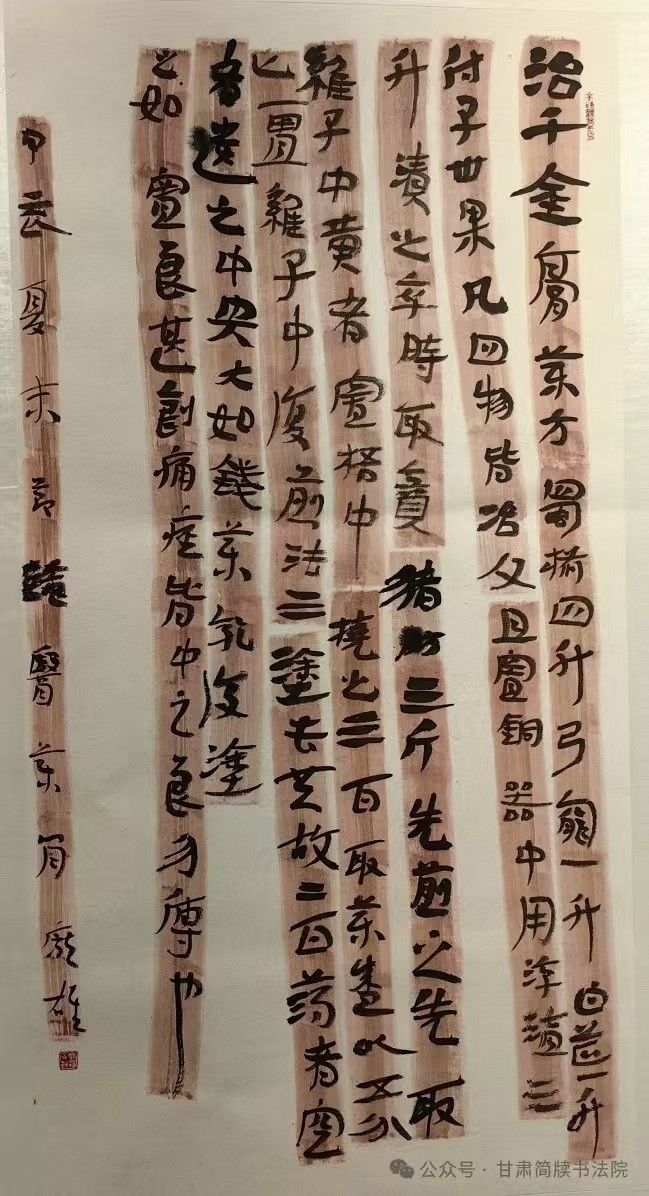 治千金膏藥方蜀椒四升弓窮一升白茝一升
付子卅果凡四物皆冶父且置銅器中用淳醯三
升漬之卒時取賁豬肪三斤先煎之先取
雞子中黄者置桮中撓之三百取藥成以五分
匕一置雞子中復煎法三塗去其故二百薄者空
者遺之中央大如錢藥乾復塗
之如置良甚創痛痓皆中之良勿傳也
甲辰夏末節臨醫藥簡龐雄
公众号 · 甘肃简牍书法院